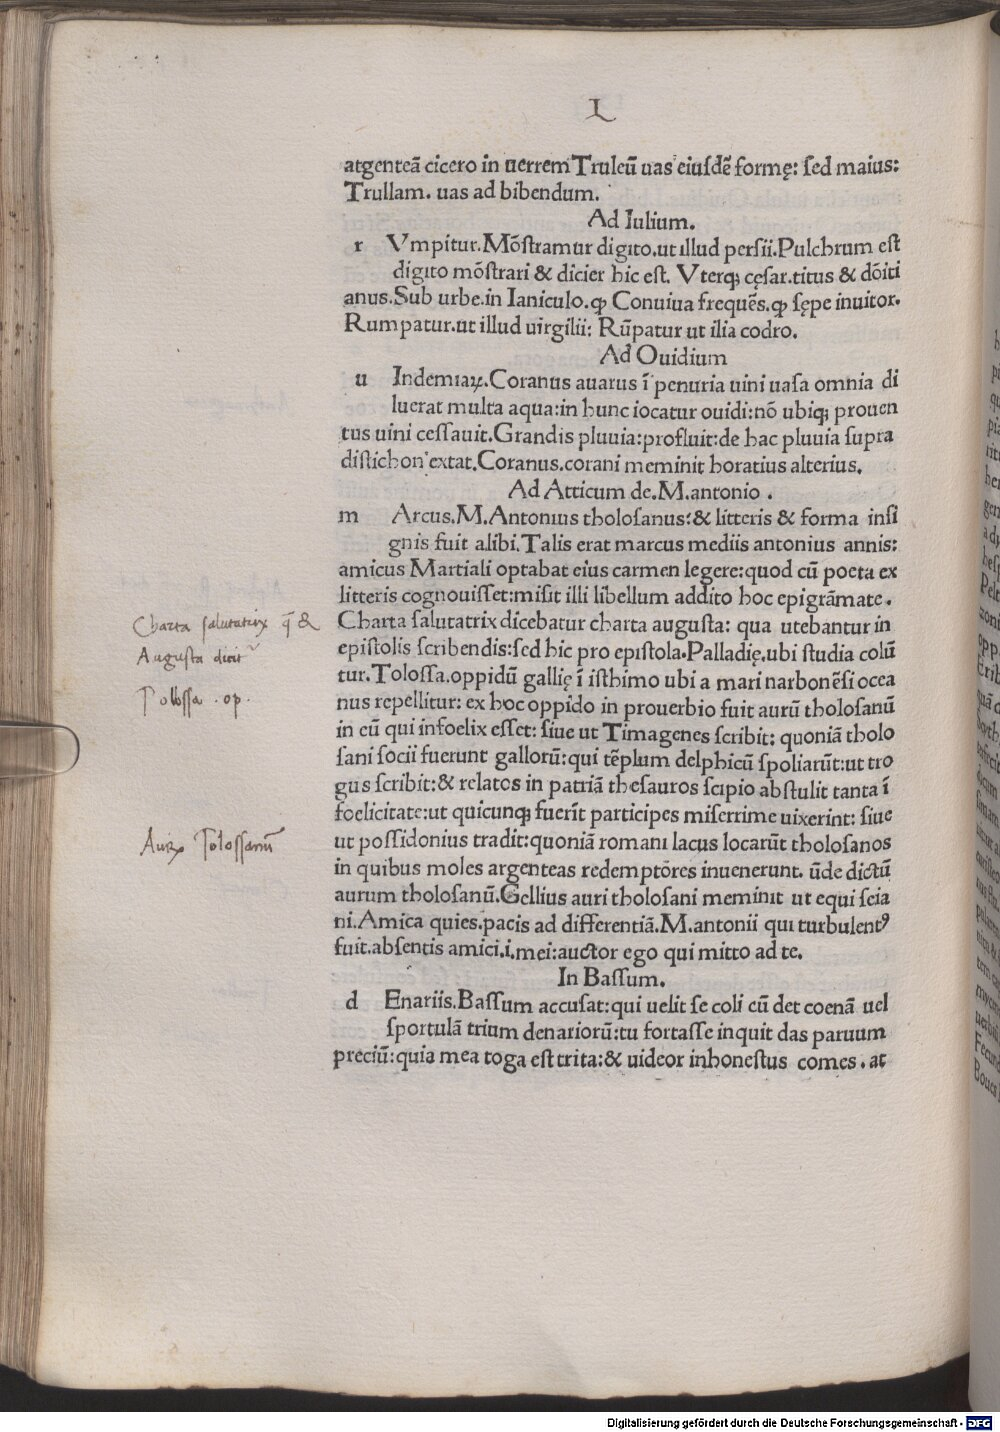 L
atgenteā cicero in uerrem Truleū uas eiusdē formę: sed maius:
Trullam. uas ad bibendum.
Ad Iulium.
r Vmpitur. Mōstramur digito. ut illud persii. Pulchrum est
digito mōstrari & dicier hic est. Vterq; cęsar. titus & dōiti
anus. Sub urbe. in Ianiculo. ꝙ Conuiua frequēs. ꝙ sępe inuitor.
Rumpatur. ut illud uirgilii: Rūpatur ut ilia codro.
Ad Ouidium
u Indemiaꝝ. Coranus auarus ī penuria uini uasa omnia di
luerat multa aqua: in hunc iocatur ouidi: nō ubiq; prouen
tus uini cessauit. Grandis pluuia: profluit: de hac pluuia supra
distichon extat. Coranus. corani meminit horatius alterius.
Ad Atticum de. M. antonio.
m Arcus. M. Antonius tholosanus: & litteris & forma insi
gnis fuit alibi. Talis erat marcus mediis antonius annis:
amicus Martiali optabat eius carmen legere: quod cū poeta ex
litteris cognouisset: misit illi libellum addito hoc epigrāmate.
Charta salutatrix dicebatur charta augusta: qua utebantur in
epistolis scribendis: sed hic pro epistola. Palladię. ubi studia colū
tur. Tolossa. oppidū gallię ī isthimo ubi a mari narbonēsi ocea
nus repellitur: ex hoc oppido in prouerbio fuit aurū tholosanū
in eū qui infoelix esset: siue ut Timagenes scribit: quoniā tholo
sani socii fuerunt gallorū: qui tēplum delphicū spoliarūt: ut tro
gus scribit: & relatos in patriā thesauros scipio abstulit tanta ī
foelicitate: ut quicunq; fuerīt participes miserrime uixerint: siue
ut possidonius tradit: quoniā romani lacus locarūt tholosanos
in quibus moles argenteas redemptōres inuenerunt. ūde dictū
aurum tholosanū. Gellius auri tholosani meminit ut equi seia
ni. Amica quies. pacis ad differentiā. M. antonii qui turbulentꝰ
fuit. absentis amici. i. mei: auctor ego qui mitto ad te.
In Bassum.
d Enariis. Bassum accusat: qui uelit se coli cū det coenā uel
sportulā trium denariorū: tu fortasse inquit das paruum
preciū: quia mea toga est trita: & uideor inhonestus comes. at
Charta salutatrix q̄ &
Augusta dicit~
Tolossa. op.
Auꝝ Tolossanū
Digitalisierung gefördert durch die Deutsche Forschungsgemeinschaft - DFG